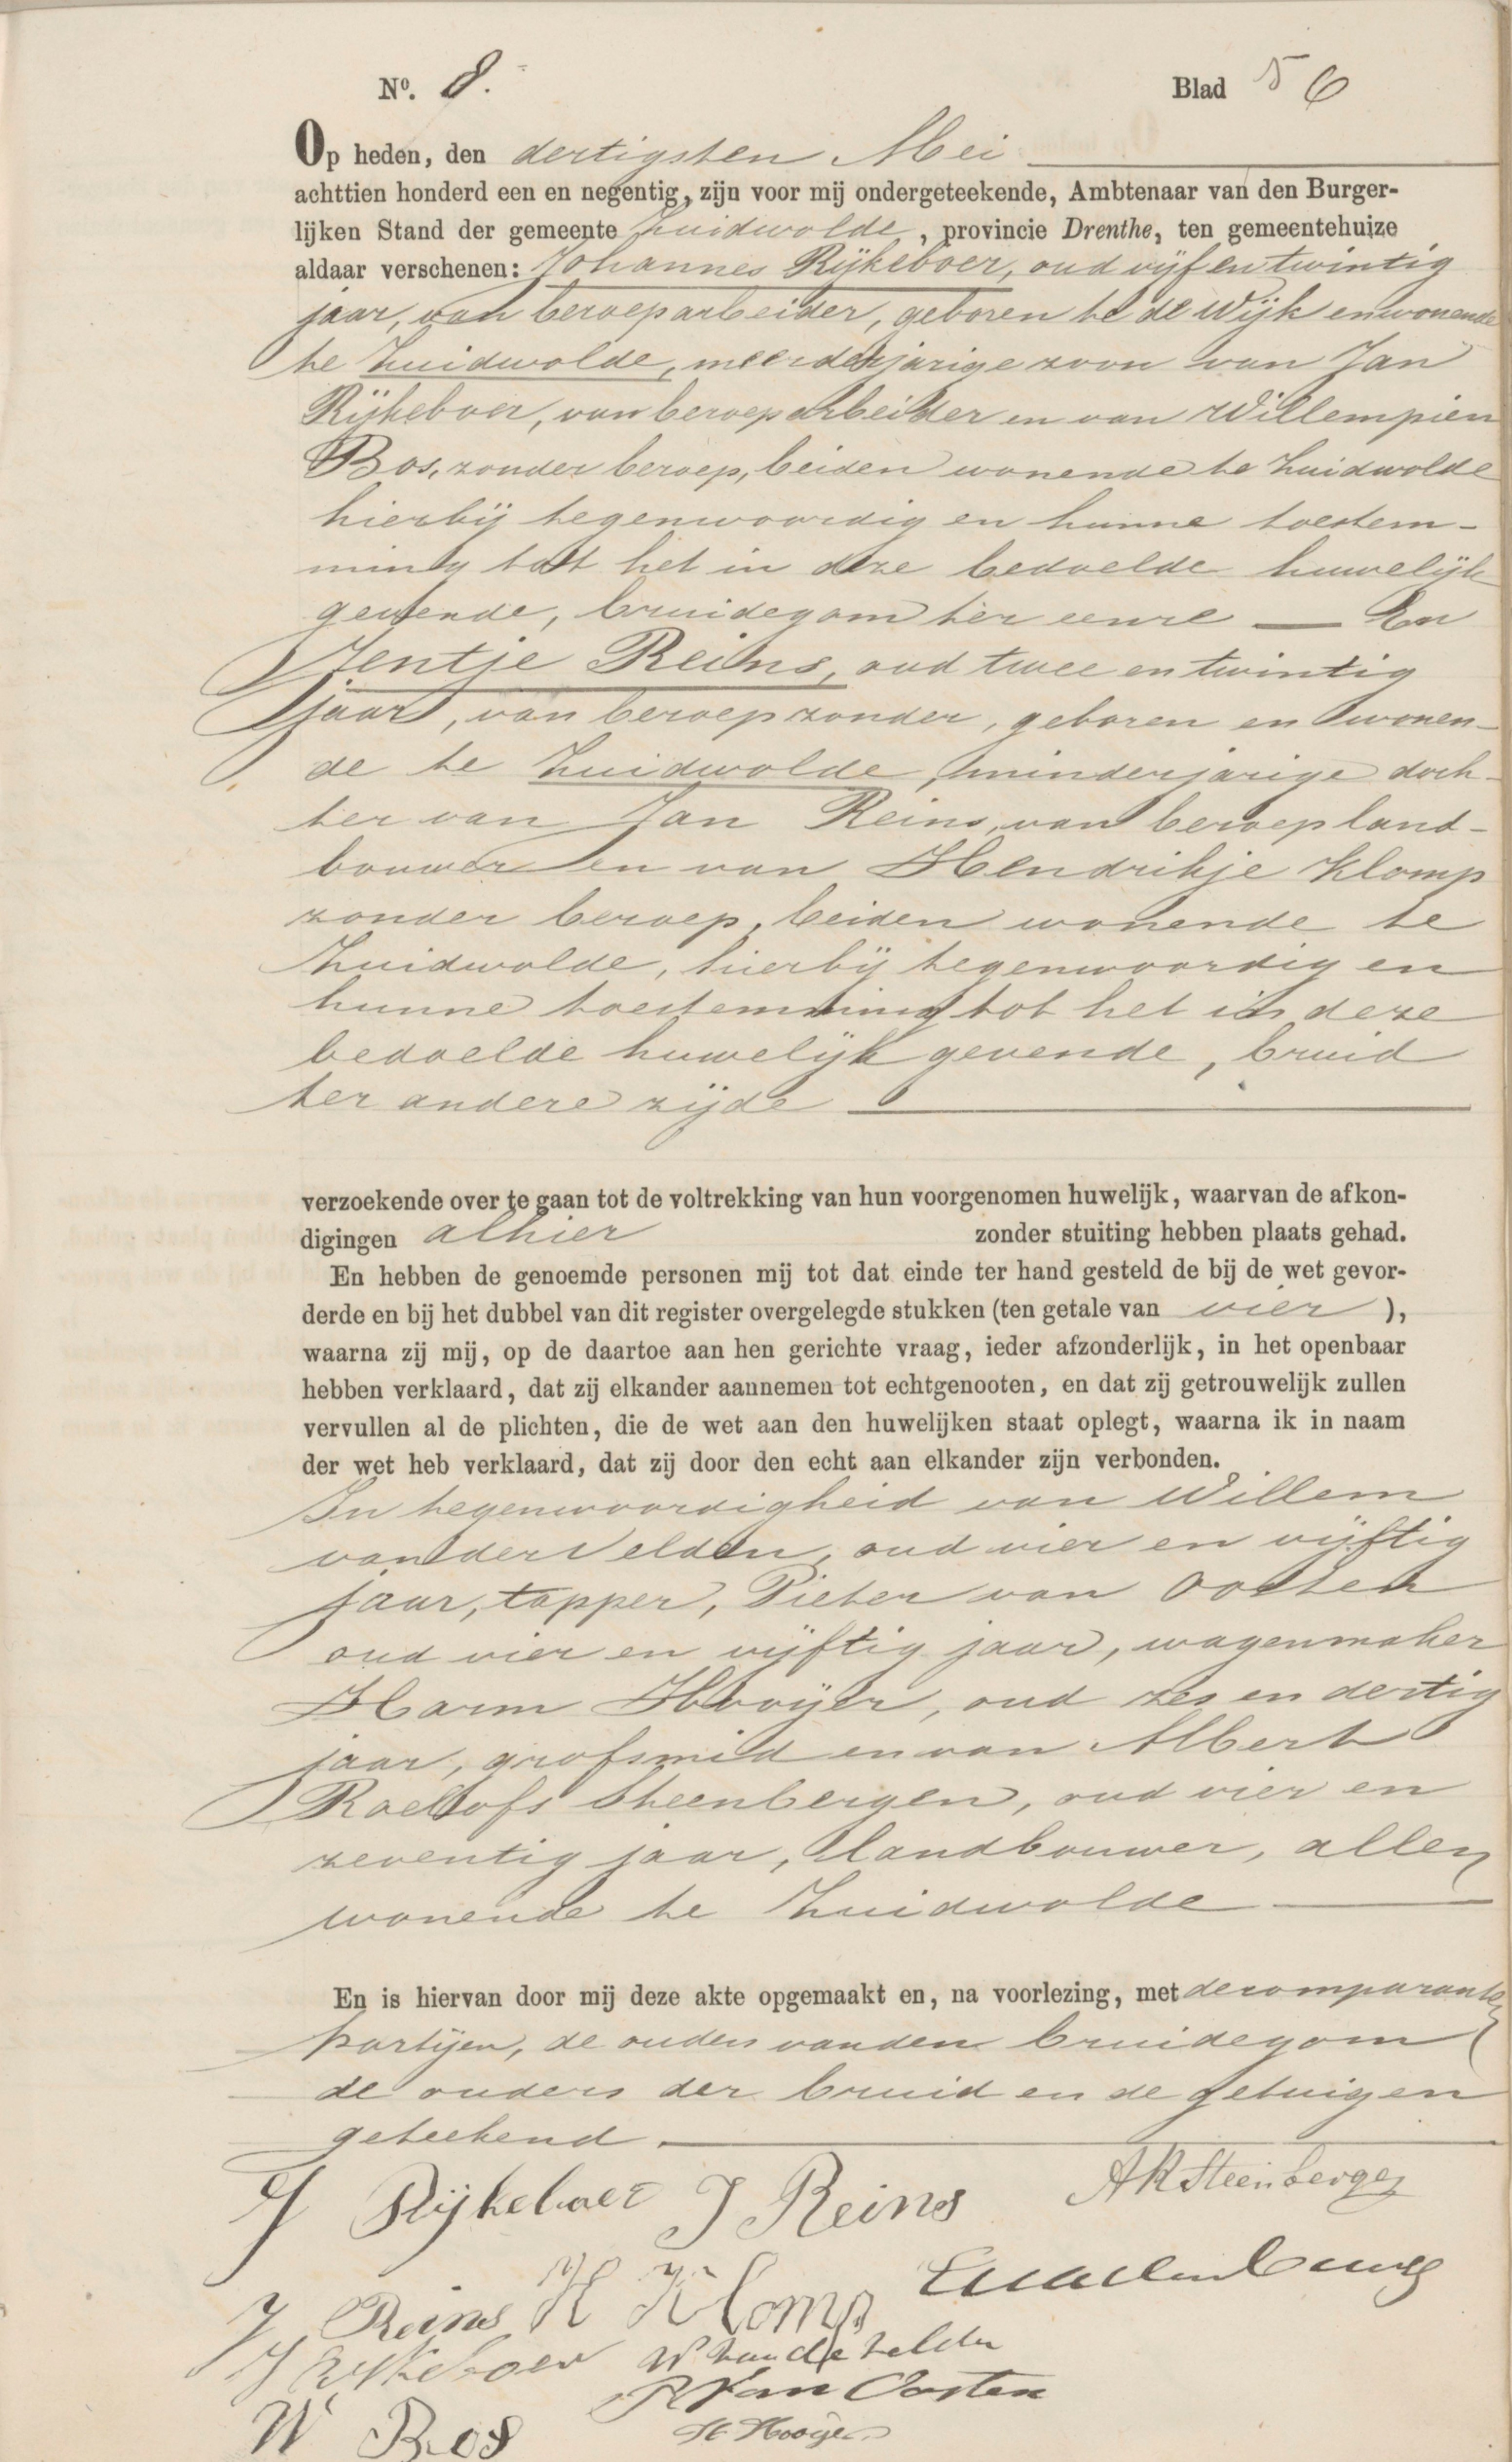 Nº. 8.
Blad 5 6
Op heden, den dertigsten Mei
achttien honderd een en negentig, zijn voor mij ondergeteekende, Ambtenaar van den Burger-
lijken Stand der gemeente Zuidwolde, provincie Drenthe, ten gemeentehuize
aldaar verschenen: Johannes Rijkeboer, oud vijf en twintig
jaar, van beroep arbeider, geboren te de Wijk en wonende
te Zuidwolde, meerderjarige zoon van Jan
Rijkeboer, van beroep arbeider en van Willempien
Bos, zonder beroep, beiden wonende te Zuidwolde
hierbij tegenwoordig en hunne toestem-
ming tot het in deze bedoelde huwelijk
gevende, bruidegom ter eenre — En
Jentje Reins, oud twee en twintig
jaar, van beroep zonder, geboren en wonen-
de te Zuidwolde, minderjarige doch-
ter van Jan Reins, van beroep land-
bouwer en van Hendrikje Klomp
zonder beroep, beiden wonende te
Zuidwolde, hierbij tegenwoordig en
hunne toestemming tot het in deze
bedoelde huwelijk gevende, bruid
ter andere zijde
verzoekende over te gaan tot de voltrekking van hun voorgenomen huwelijk, waarvan de afkon-
digingen alhier zonder stuiting hebben plaats gehad.
En hebben de genoemde personen mij tot dat einde ter hand gesteld de bij de wet gevor-
derde en bij het dubbel van dit register overgelegde stukken (ten getale van vier),
waarna zij mij, op de daartoe aan hen gerichte vraag, ieder afzonderlijk, in het openbaar
hebben verklaard, dat zij elkander aannemen tot echtgenooten, en dat zij getrouwelijk zullen
vervullen al de plichten, die de wet aan den huwelijken staat oplegt, waarna ik in naam
der wet heb verklaard, dat zij door den echt aan elkander zijn verbonden.
In tegenwoordigheid van Willem
van der Velden, oud vier en vijftig
jaar, tapper, Pieter van Oosten
oud vier en vijftig jaar, wagenmaker
Harm Hooijer, oud zes en dertig
jaar, grofsmid en van Albert
Roelofs Steenbergen, oud vier en
zeventig jaar, landbouwer, allen
wonende te Zuidwolde
En is hiervan door mij deze akte opgemaakt en, na voorlezing, met de comparante
partijen, de ouders van den bruidegom
de ouders der bruid en de getuigen
geteekend.
J Rijkeboer J Reins A R Steenbergen
J Reins H Klomp
J Rijkeboer W van de Velden
P van Oosten
W Bos H Hooijer